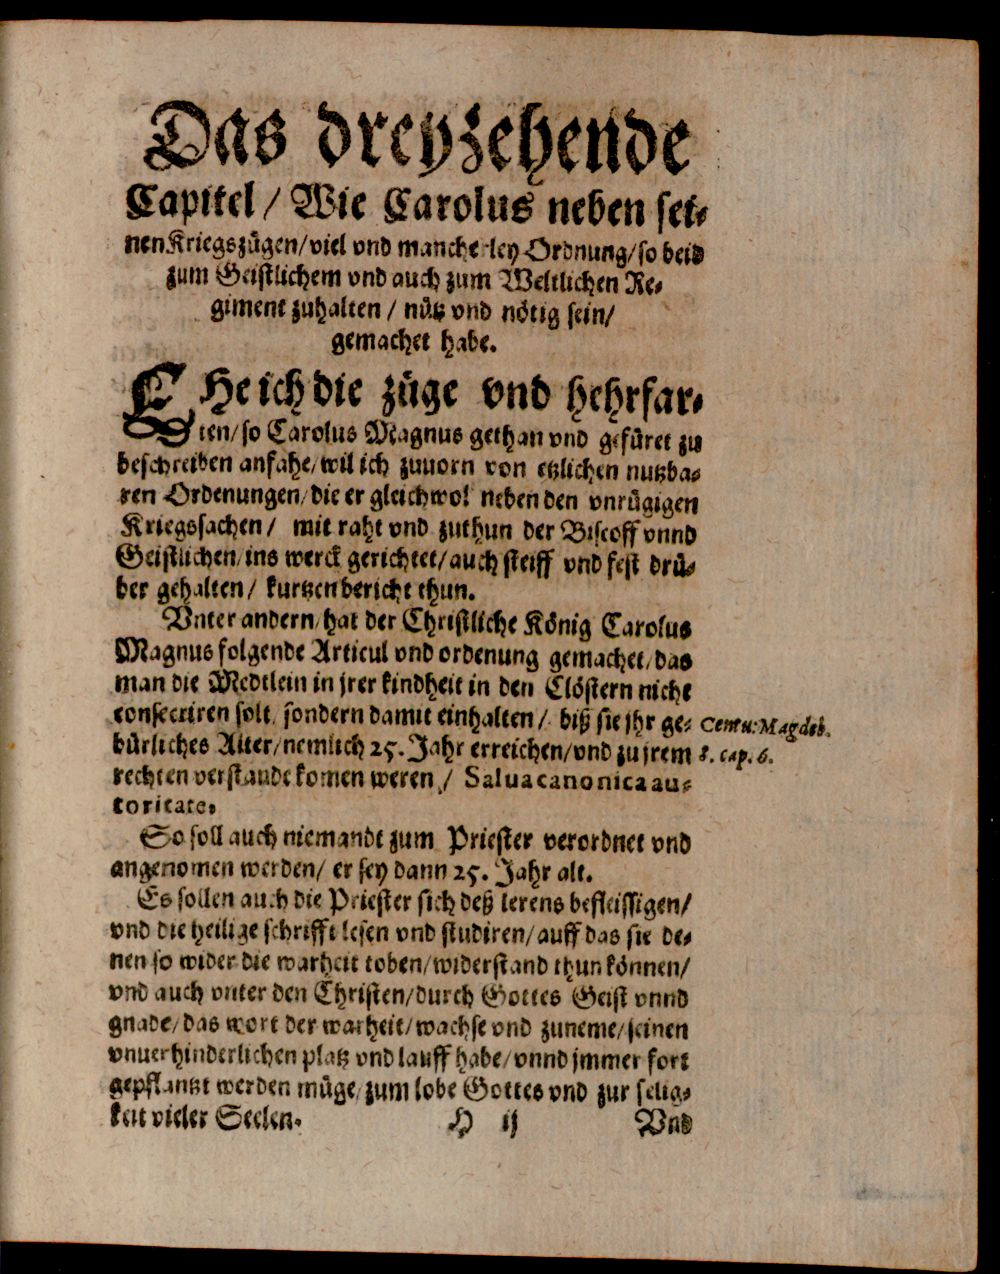 Das dreyzehende
Capitel / Wie Carolus neben sei⸗
nen Kriegszügen/ viel vnd mancherley Ordnung/ so beid
zum Geistlichem vnd auch zum Weltlichen Re⸗
giment zuhalten / nütz vnd nötig sein/
gemachet habe.
EHe ich die züge vnd hehrfar⸗
ten/ so Carolus Magnus gethan vnd gefüret zu
beschreiben anfahe/ wil ich zuuorn von etzlichen nutzba⸗
ren Ordenungen/ die er gleichwol neben den vnrügigen
Kriegssachen/ mit raht vnd zuthun der Biscoff vnnd
Geistlichen/ ins werck gerichtet/ auch steiff vnd fest drü⸗
ber gehalten/ kurtzen bericht thun.
Vnter andern/ hat der Christliche König Carolus
Magnus folgende Articul vnd ordenung gemachet/ das
man die Medtlein in jrer kindheit in den Clöstern nicht
consecriren solt/ sondern damit einhalten/ biß sie jhr ge⸗
bürliches Alter/ nemlich 25. Jahr erreichen/ vnd zu jrem
rechten verstande komen weren / Salua canonica au⸗
toritate.
Centu: Magdeb.
8. cap. 6.
So soll auch niemandt zum Priester verordnet vnd
angenomen werden/ er sey dann 25. Jahr alt.
Es sollen auch die Priester sich deß lerens befleissigen/
vnd die heilige schrifft lesen vnd studiren/ auff das sie de⸗
nen so wider die warheit toben/ widerstand thun können/
vnd auch vnter den Christen/ durch Gottes Geist vnnd
gnade/ das wort der warheit/ wachse vnd zuneme/ seinen
vnuerhinderlichen platz vnd lauff habe/ vnnd jmmer fort
gepflantzt werden müge/ zum lobe Gottes vnd zur selig⸗
keit vieler Seelen.
H ij
Vnd